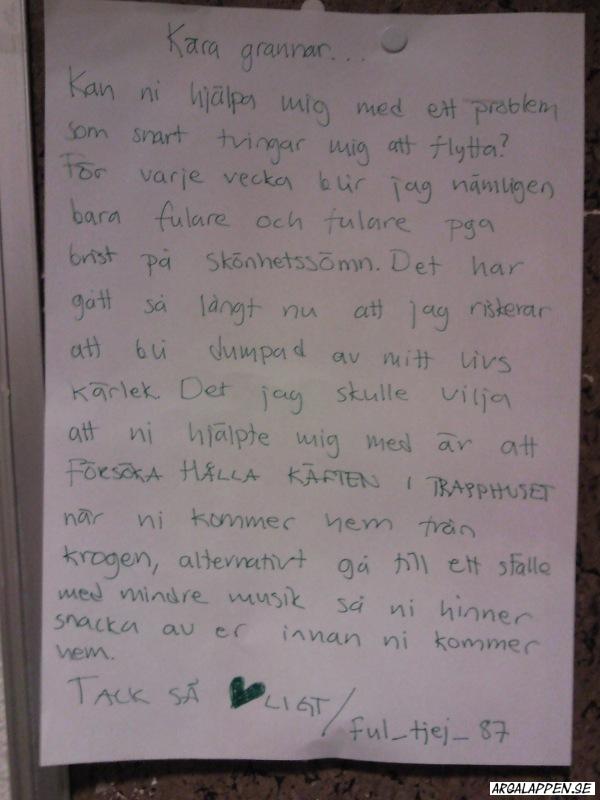 Kära grannar...
Kan ni hjälpa mig med ett problem
som snart tvingar mig att flytta?
För varje vecka blir jag nämligen
bara fulare och fulare pga
brist på skönhetssömn. Det har
gått så långt nu att jag riskerar
att bli dumpad av mitt livs
kärlek. Det jag skulle vilja
att ni hjälpte mig med är att
FÖRSÖKA HÅLLA KÄFTEN I TRAPPHUSET
när ni kommer hem från
krogen, alternativt gå till ett ställe
med mindre musik så ni hinner
snacka av er innan ni kommer
hem.
TACK SÅ ♥LIGT/
ful_tjej_87
ARGALAPPEN.SE